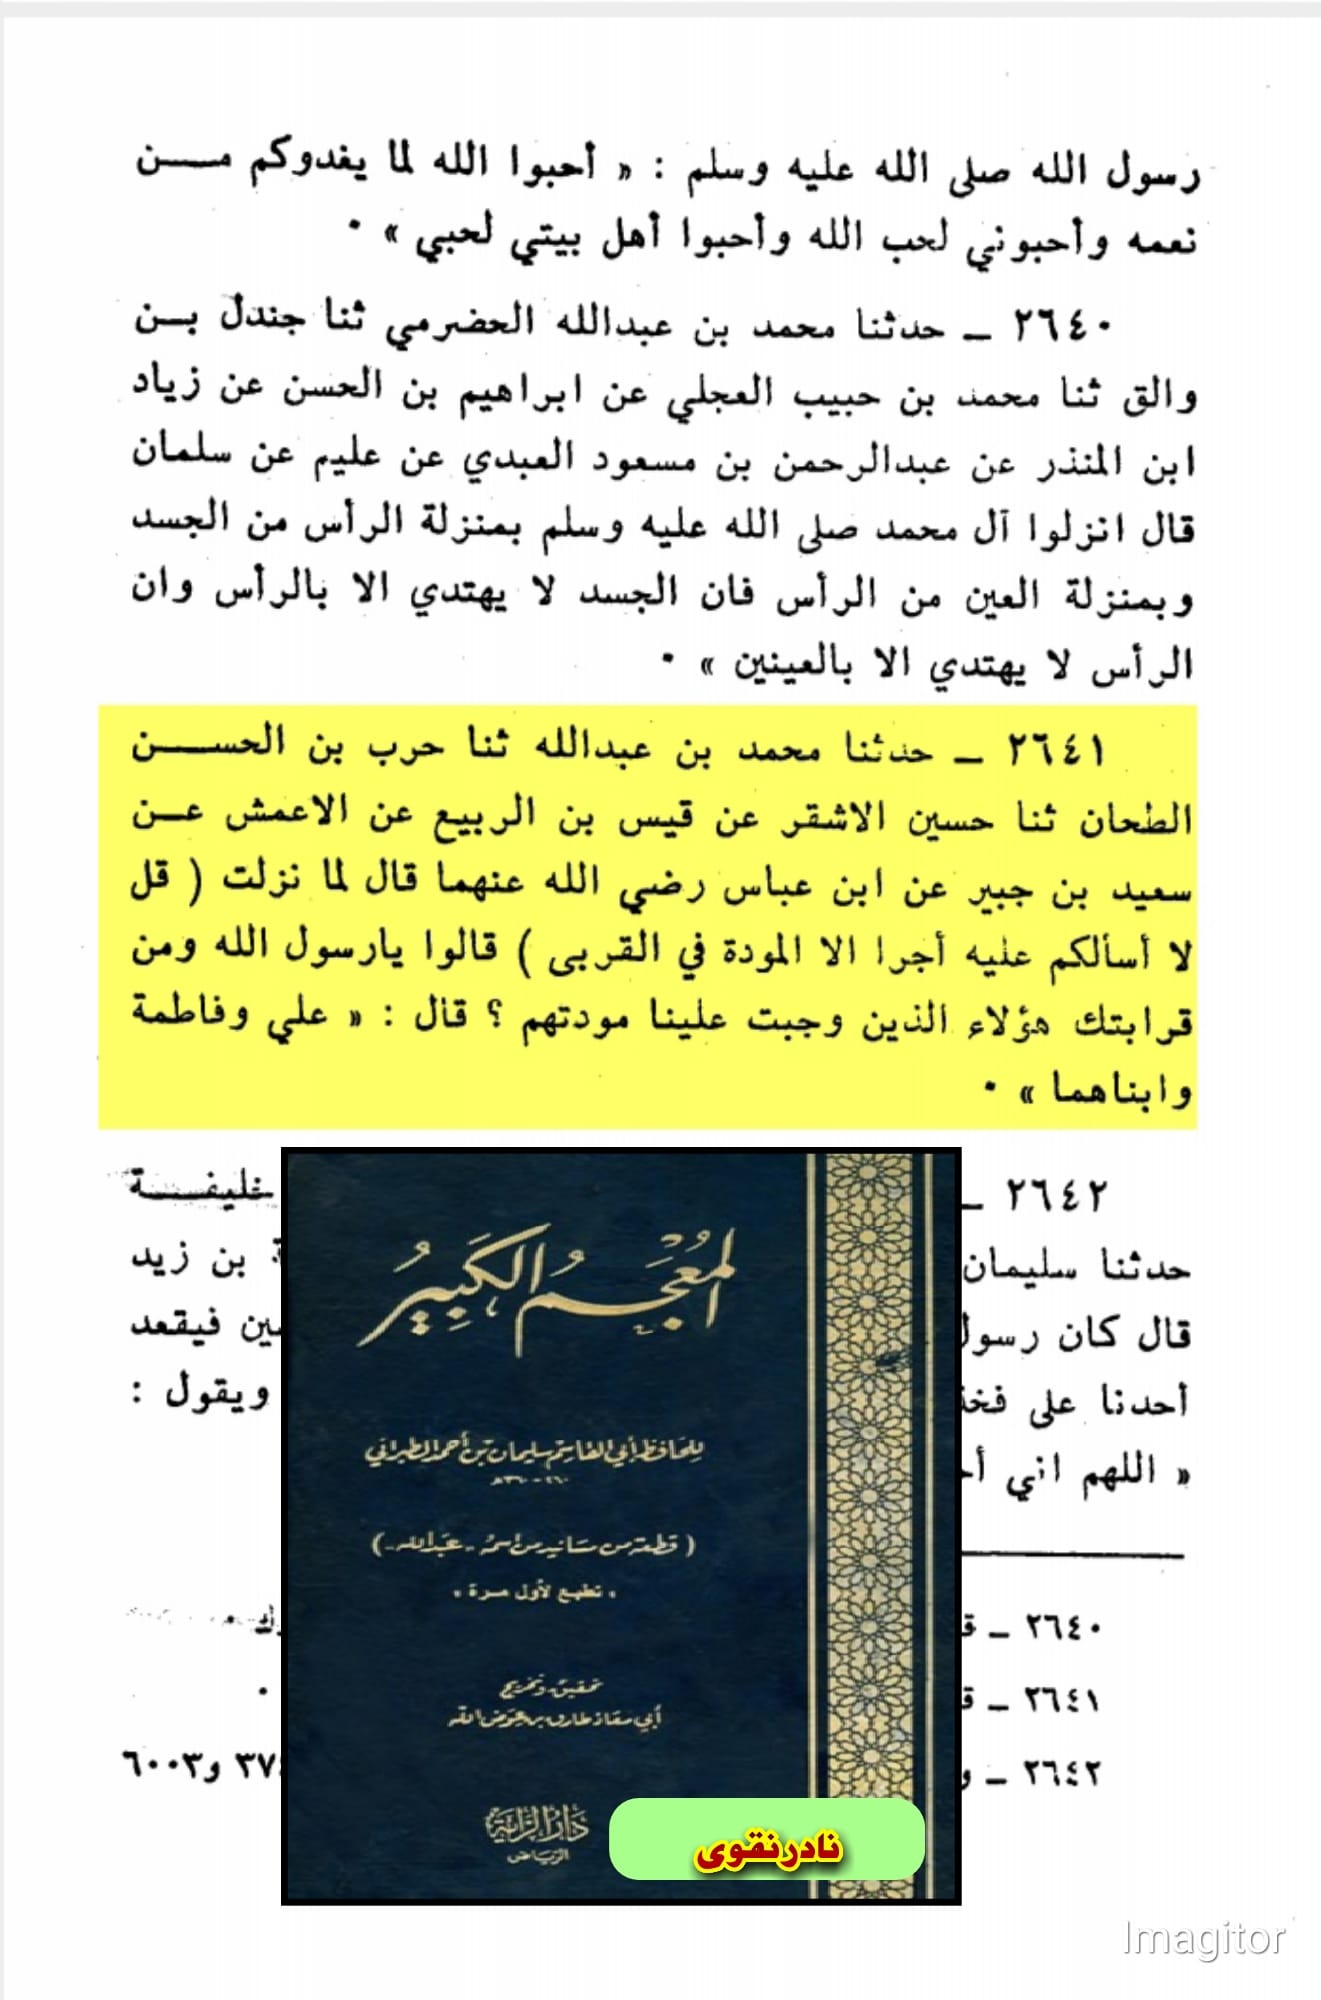 رسول الله صلى الله عليه وسلم : « أحبوا الله لما يغدوكم مـــن
نعمه وأحبوني لحب الله وأحبوا أهل بيتي لحبي » •
٢٦٤٠ ـ حدثنا محمد بن عبدالله الحضرمي ثنا جندل بـــن
والق ثنا محمد بن حبيب العجلي عن ابراهيم بن الحسن عن زياد
ابن المنذر عن عبدالرحمن بن مسعود العبدي عن عليم عن سلمان
قال انزلوا آل محمد صلى الله عليه وسلم بمنزلة الرأس من الجسد
وبمنزلة العين من الرأس فان الجسد لا يهتدي الا بالرأس وان
الرأس لا يهتدي الا بالعينين » •
٢٦٤١ ـ حدثنا محمد بن عبدالله ثنا حرب بن الحســـن
الطحان ثنا حسين الاشقر عن قيس بن الربيع عن الاعمش عـــن
سعيد بن جبير عن ابن عباس رضي الله عنهما قال لما نزلت ( قل
لا أسألكم عليه أجرا الا المودة في القربى ) قالوا يارسول الله ومن
قرابتك هؤلاء الذين وجبت علينا مودتهم ؟ قال : « علي وفاطمة
وابناهما » •
٢٦٤٢ ـ خليفـــة
حدثنا سليمان بن زيد
قال كان رسول فيقعد
أحدنا على ويقول :
« اللهم اني
٢٦٤٠ ـ
٢٦٤١ ـ
٢٦٤٢ ـ و٦٠٠٣
المُعجَمُ الكَبِيرُ
للحافظ أبي القاسم سليمان بن أحمد الطبراني
٢٦٠ - ٣٦٠ هـ
( قطعة من مسانيد من اسمه - عبدالله - )
• تطبع لأول مرة •
تحقيق وتخريج
أبي معاذ طارق بن عوض الله
دار الراية
الرياض
نادرنقوی
Imagitor